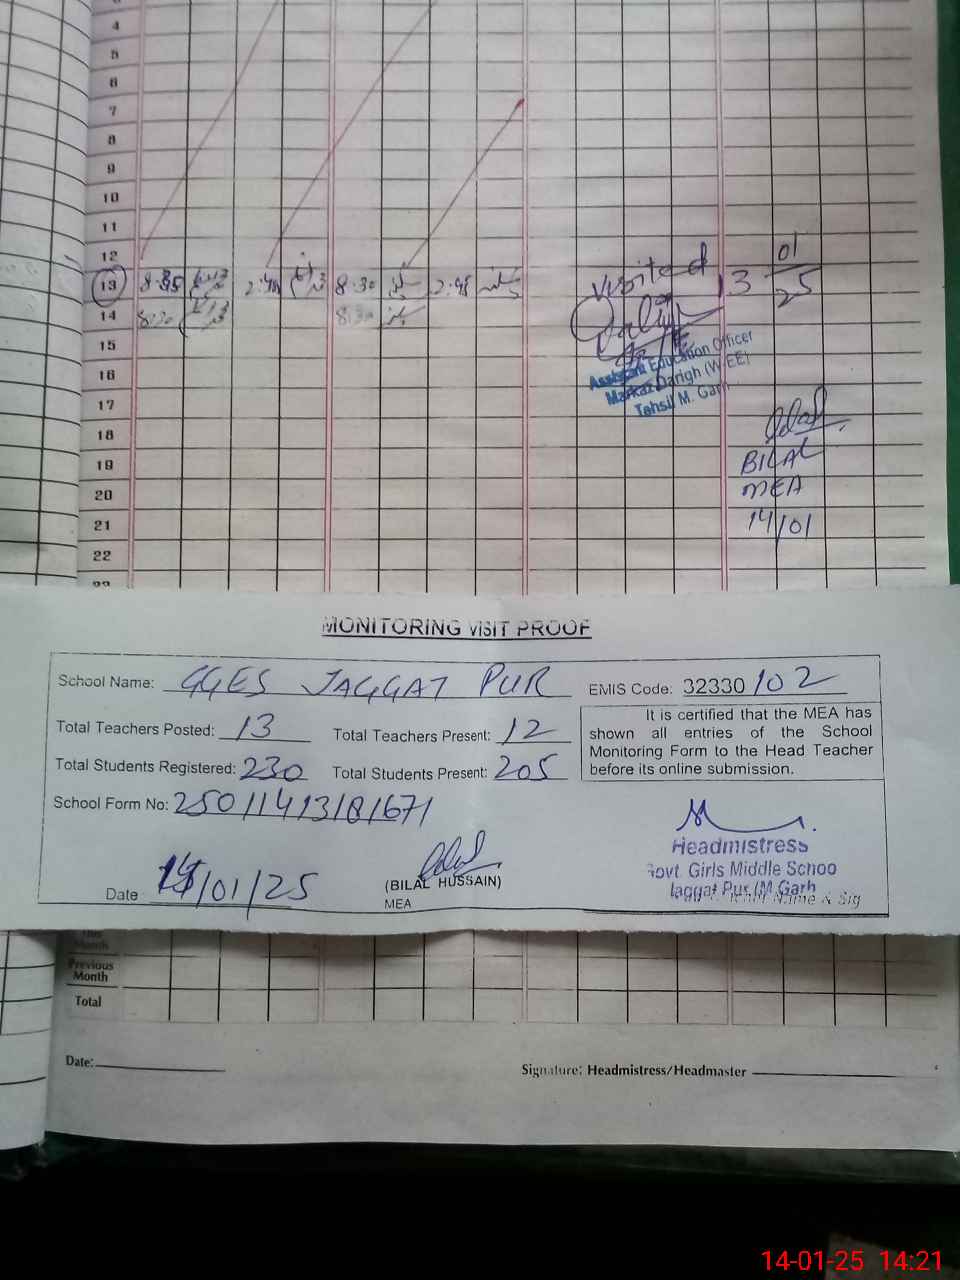 4
5
6
7
8
9
10
11
12
13 8:35 2:45 8:30 2:45
14 8:30 8:30
15
16
17
18
19
20
21
22
23
visited
13 01
25
Assistant Education Officer
Markaz Darigh (W-EE)
Tehsil M. Garh
BILAL
MEA
14/01
MONITORING VISIT PROOF
School Name: GGES JAGGAT PUR EMIS Code: 32330 102
Total Teachers Posted: 13 Total Teachers Present: 12
Total Students Registered: 230 Total Students Present: 205
It is certified that the MEA has
shown all entries of the School
Monitoring Form to the Head Teacher
before its online submission.
School Form No:
Date 14/01/25
(BILAL HUSSAIN)
MEA
Headmistress
Govt. Girls Middle Schoo
Jaggat Pur (M.Garh
Name & Sig
This
Month
Previous
Month
Total
Date:
Signature: Headmistress/Headmaster
14-01-25 14:21